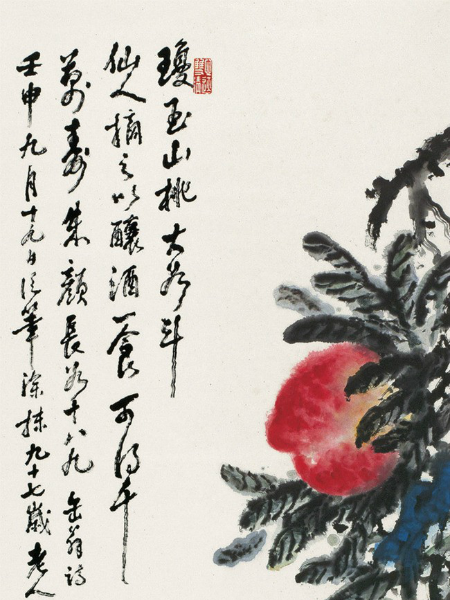 瓊玉山桃大如斗
仙人摘之以釀酒一食可得千
萬壽朱顏長如十八九 缶翁詩
壬申九月十九日信筆涂抹九十七歲老人